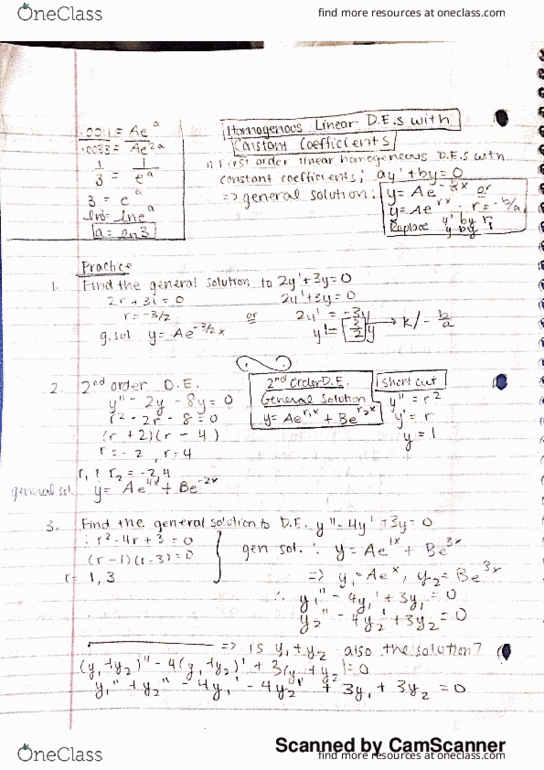 OneClass
find more resources at oneclass.com
.0011 = Ae^a
.0033 = Ae^2a
1/3 = 1/e^a
3 = e^a
ln3 = lne^a
a = ln3
Homogenous Linear D.E.s with
Constant Coefficients
1) First order linear homogeneous D.E.s with
constant coefficients; ay' + by = 0
=> general solution:
or
y = Ae^rx, r = -b/a
Replace y' by r
y by 1
Practice
1. Find the general solution to 2y' + 3y = 0
2r + 3i = 0
2y' + 3y = 0
r = -3/2
or
2y' = -3y
g. sol y = Ae^-3/2x
→ k / -b/a
2. 2nd order D.E.
y'' - 2y - 8y = 0
r² - 2r - 8 = 0
(r + 2)(r - 4)
r = -2, r = 4
r₁ & r₂ = -2, 4
general sol. y = Ae^4x + Be^-2x
2nd Order D.E.
General Solution
y = Ae^r₁x + Be^r₂x
short cut
y'' = r²
y' = r
y = 1
3. Find the general solution to D.E. y'' - 4y' + 3y = 0
: r² - 4r + 3 = 0
(r - 1)(r - 3) = 0
r = 1, 3
gen sol. : y = Ae^1x + Be^3x
=> y₁ = Ae^x, y₂ = Be^3x
∴ y₁'' - 4y₁' + 3y₁ = 0
y₂'' - 4y₂' + 3y₂ = 0
=> is y₁ + y₂ also the solution?
(y₁ + y₂)'' - 4(y₁ + y₂)' + 3(y₁ + y₂) = 0
y₁'' + y₂'' - 4y₁' - 4y₂' + 3y₁ + 3y₂ = 0
Scanned by CamScanner
OneClass
find more resources at oneclass.com